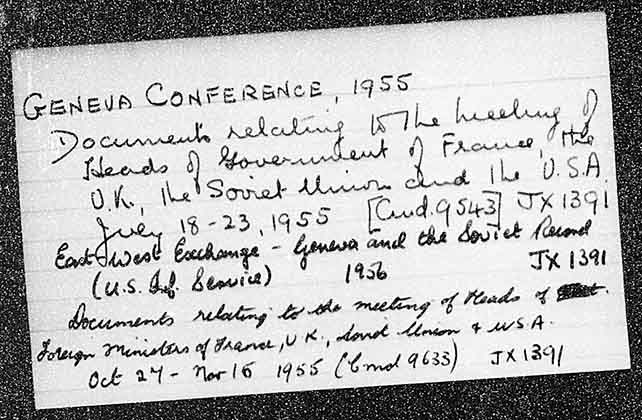 GENEVA CONFERENCE, 1955
Documents relating to the meeting of
Heads of Government of France, the
U.K., the Soviet Union and the U.S.A.
July 18-23, 1955 [Cmd. 9543] JX 1391
East-West Exchange - Geneva and the Soviet Record
(U.S. Inf. Service) 1956 JX 1391
Documents relating to the meeting of Heads of
Foreign Ministers of France, U.K., Soviet Union & U.S.A.
Oct 27 - Nov 16 1955 (Cmd 9633) JX 1391